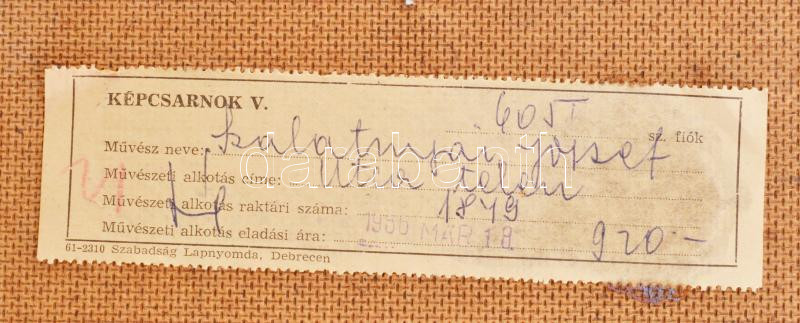 KÉPCSARNOK V.
605 sz. fiók
Művész neve: Szalatnyai József
Művészeti alkotás címe: Utca télen
Művészeti alkotás raktári száma: 1849
Művészeti alkotás eladási ára: 920-
MAR 18
61-2310 Szabadság Lapnyomda, Debrecen
darabanth